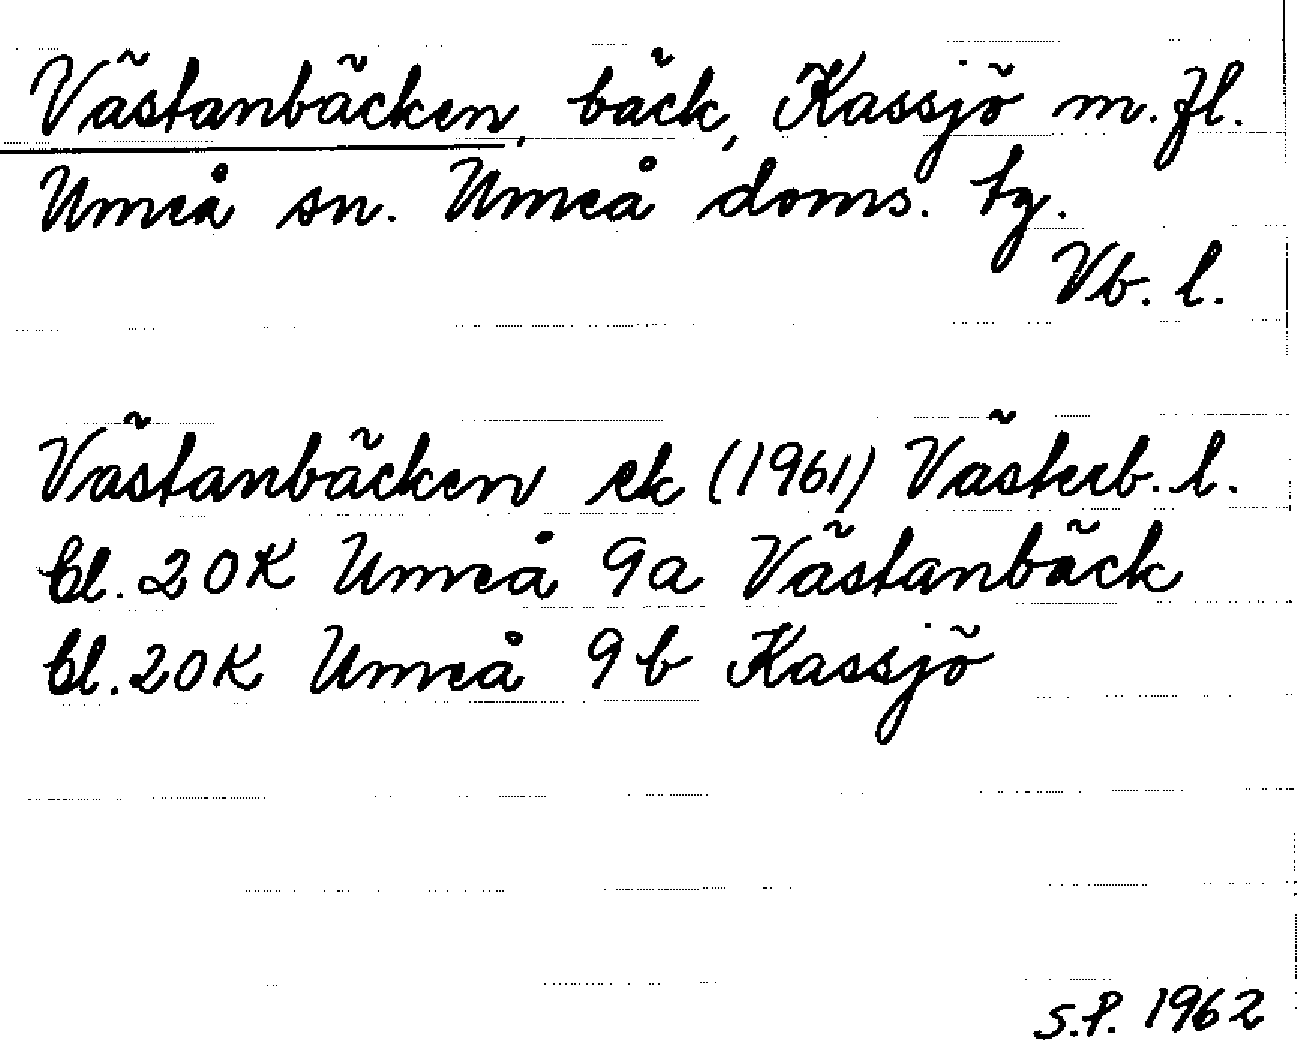 Västanbäcken, bäck, Kassjö m.fl.
Umeå sn. Umeå doms. tg.
Vb. l.
Västanbäcken ek (1961) Västerb. l.
bl. 20K Umeå 9a Västanbäck
bl. 20K Umeå 9b Kassjö
S.P. 1962